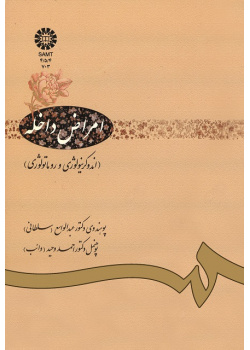 SAMT
امراض داخله
(اندوکرینولوژی و روماتولوژی)
پوهندوی دکتور عبدالواسع سلطانی
پوهنمل دکتور احمد وحید (دانب)